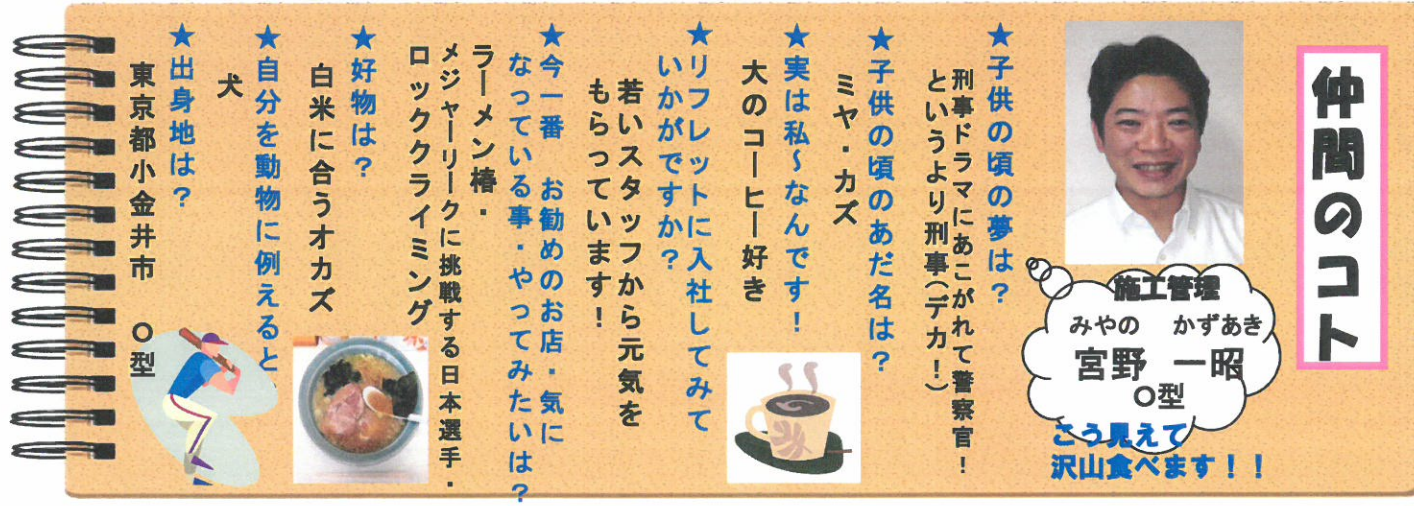 仲間のコト
施工管理
みやの　かずあき
宮野　一昭
O型
こう見えて
沢山食べます！！
★子供の頃の夢は？
刑事ドラマにあこがれて警察官！
というより刑事（デカ！）
★子供の頃のあだ名は？
ミヤ・カズ
★実は私～なんです！
大のコーヒー好き
★リフレットに入社してみて
いかがですか？
若いスタッフから元気を
もらっています！
★今一番　お勧めのお店・気に
なっている事・やってみたいは？
ラーメン椿・
メジャーリークに挑戦する日本選手・
ロッククライミング
★好物は？
白米に合うオカズ
★自分を動物に例えると
犬
★出身地は？
東京都小金井市　O型